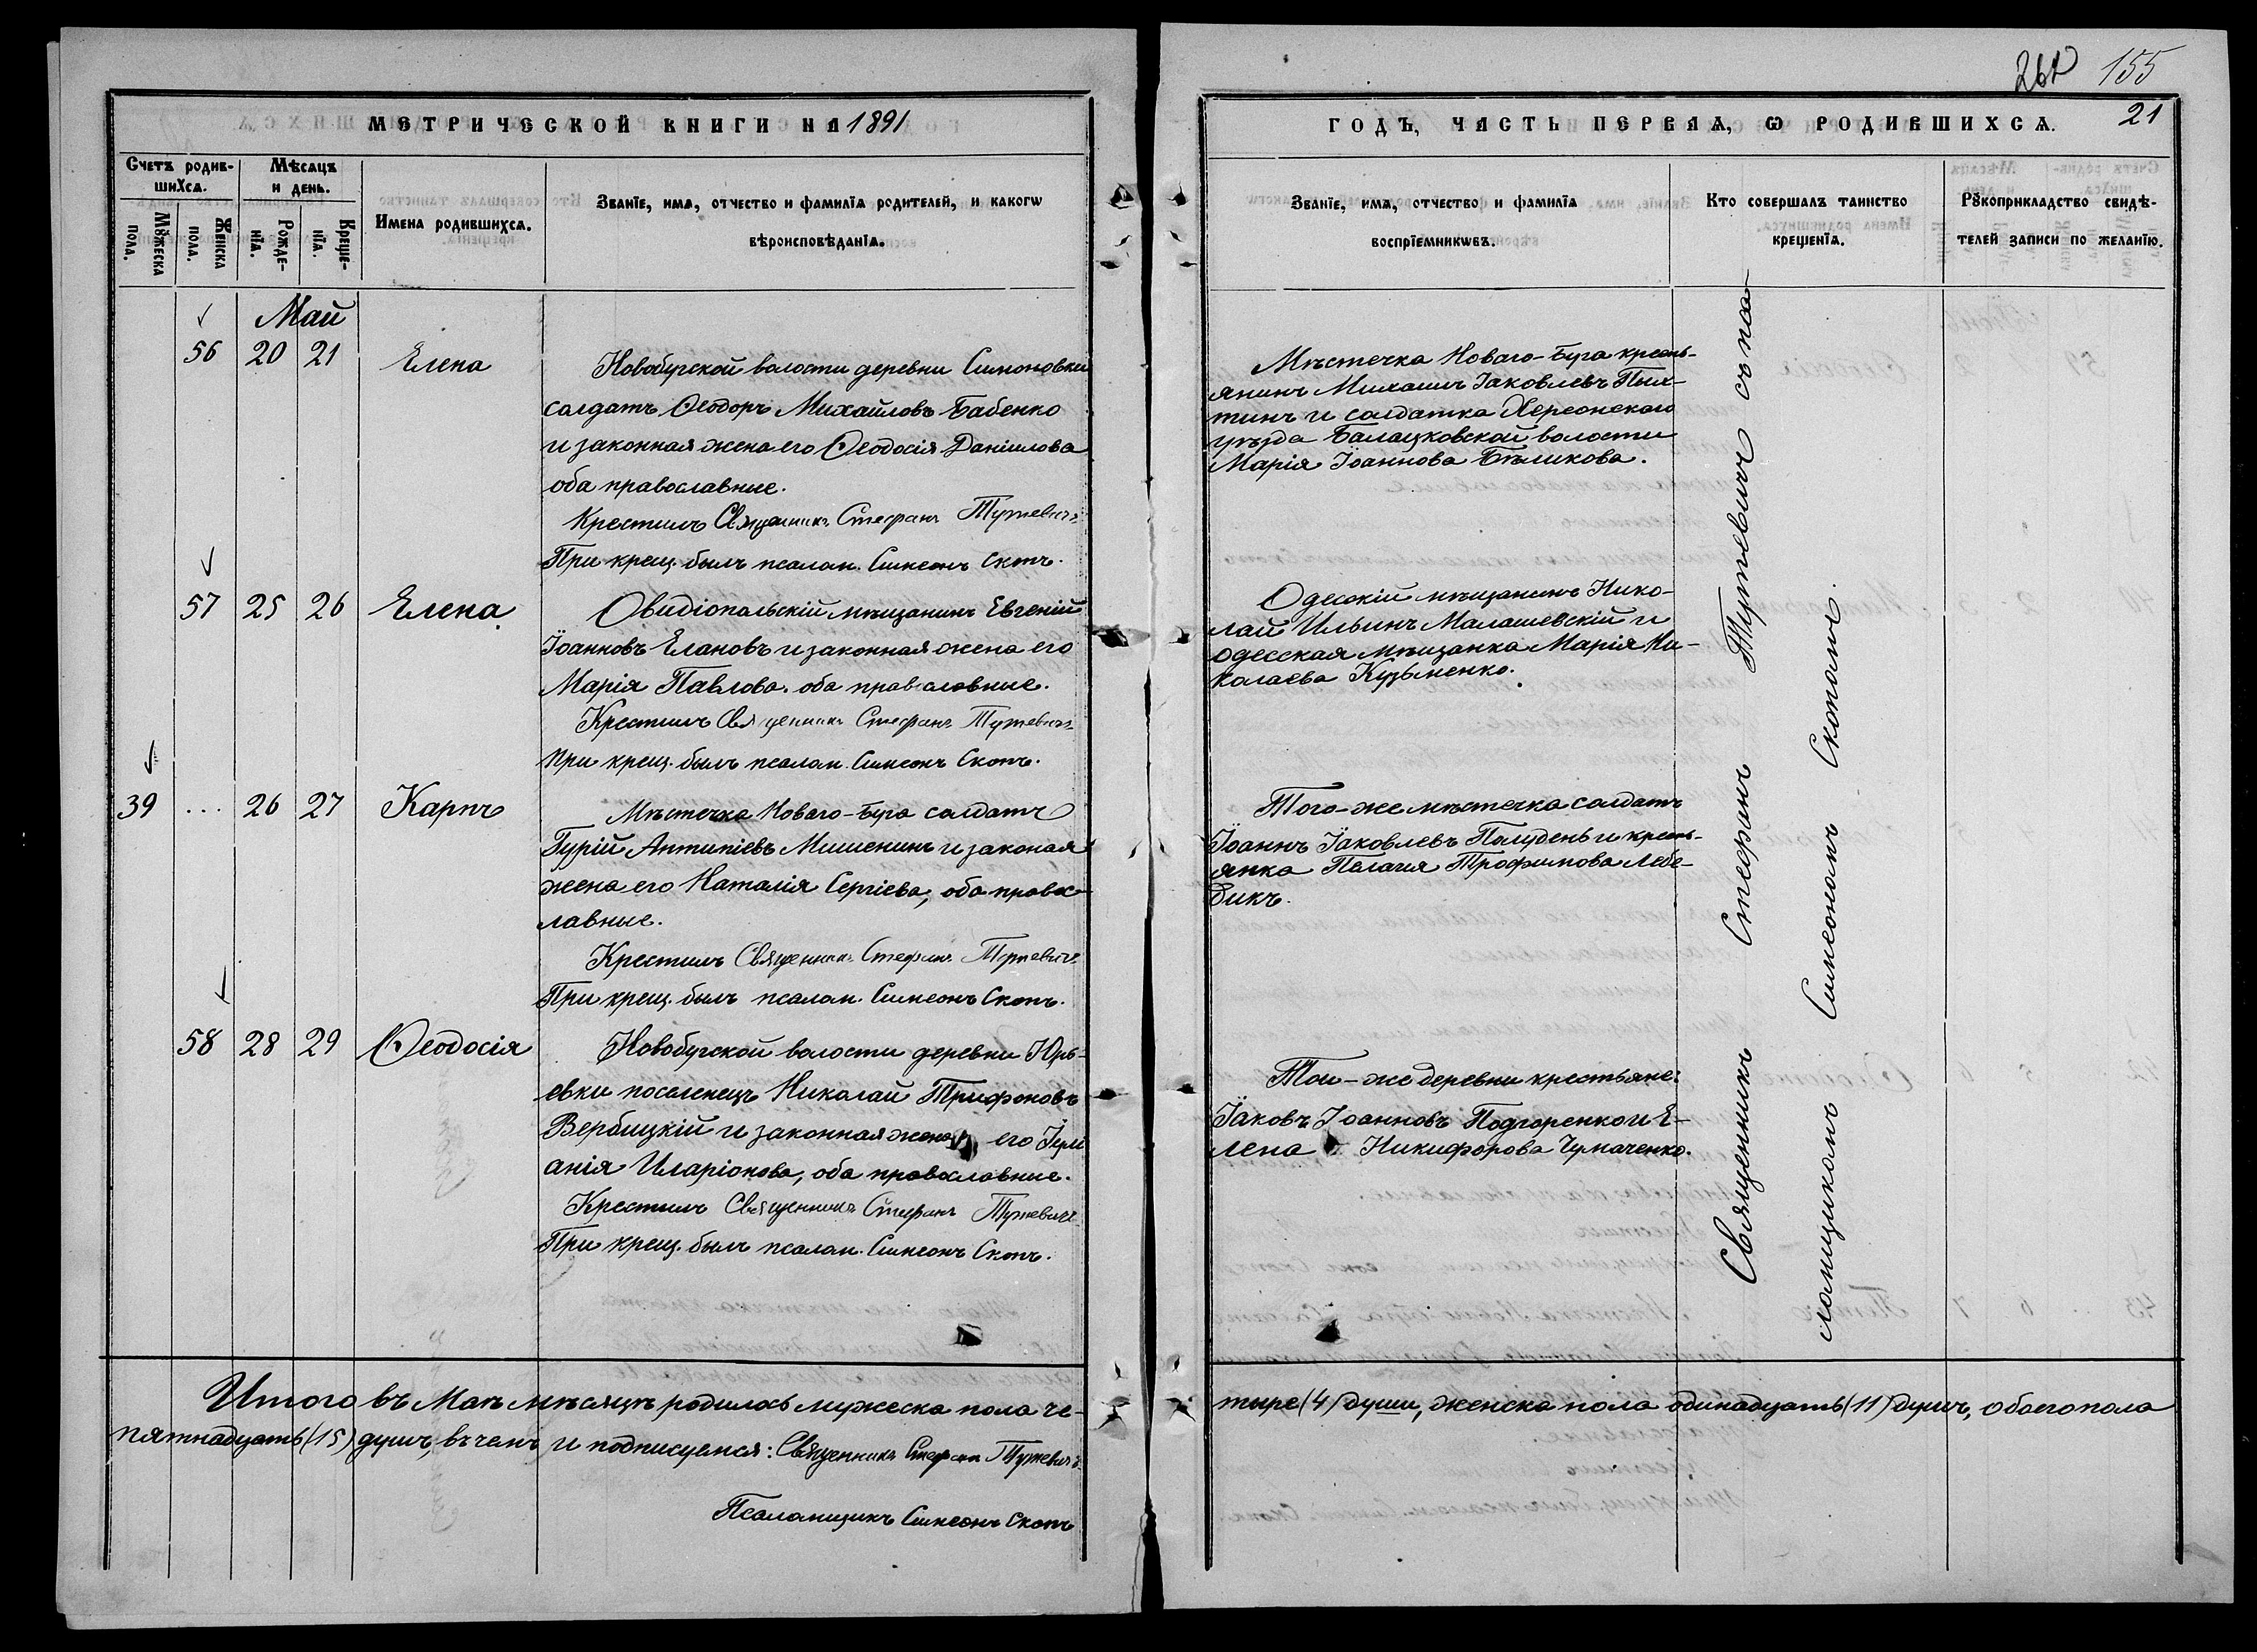 262 155
МЕТРИЧЕСКОЙ КНИГИ НА 1891
ГОДЪ, ЧАСТЬ ПЕРВАЯ, Ѡ РОДИВШИХСѦ. 21
Счетъ родив-
шихсѧ.
Мꙋжеска пола.
Женска пола.
Мѣсѧцъ
и день.
Рожде-
нїѧ.
Креще-
нїѧ.
Имена родившихсѧ.
Званїе, имѧ, отчество и фамилїѧ родителей, и какогѡ
вѣроисповѣданїѧ.
Званїе, имѧ, отчество и фамилїѧ
воспрїемникѡвъ.
Кто совершалъ таинство
крещенїѧ.
Рꙋкоприкладство свидѣ-
телей записи по желанїю.
Май
56 20 21 Елена
Новобугской волости деревни Симоновки
солдатъ Ѳеодоръ Михайловъ Бабенко
и законная жена его Ѳеодосія Даніилова
оба православные.
Крестилъ Священникъ Стефанъ
При крещ. былъ псалом. Симеонъ Скопъ.
Мѣстечка Новаго-Буга кресть-
янинъ Михаилъ Іаковлевъ Пых-
тинъ и солдатка Херсонскаго
уѣзда Балацковской волости
Марія Іоаннова Бѣликова.
57 25 26 Елена
Овидіопальскій мѣщанинъ Евгеній
Іоанновъ Елановъ и законная жена его
Марія Павлова. оба православные.
Крестилъ Священникъ Стефанъ
При крещ. былъ псалом. Симеонъ Скопъ.
Одесскій мѣщанинъ Нико-
лай Ильинъ Малашевскій и
одесская мѣщанка Марія Ни-
колаева Кузьменко.
39 ... 26 27 Карпъ
Мѣстечка Новаго-Буга солдатъ
Гурій Антипіевъ Мишенинъ и законая
жена его Наталія Сергіева, оба правос-
лавные.
Крестилъ Священникъ Стефанъ
При крещ. былъ псалом. Симеонъ Скопъ.
Того-же мѣстечка солдатъ
Іоаннъ Іаковлевъ Полудень и кресть-
янка Пелагия Трофимова Лебе-
дикъ.
58 28 29 Ѳеодосія
Новобугской волости деревни Юрь-
евки поселенецъ Николай Трифоновъ
Вербицкій и законная жена его Іули
анія Иларіонова, оба православные.
Крестилъ Священникъ Стефанъ
При крещ. былъ псалом. Симеонъ Скопъ.
Той-же деревни крестьяне:
Іаковъ Іоанновъ Подгоренко и Е-
лена Никифорова Чумаченко.
Священникъ Стефанъ съ пса-
ломщикомъ Симеономъ Скопомъ.
Итого въ Маѣ мѣсяцѣ родилось мужеска пола че-
тыре (4) души, женска пола одинадцать (11) душъ, обоего пола
пятнадцать (15) душъ, въ чемъ и подписуемся: Священникъ Стефанъ
Псаломщикъ Симеонъ Скопъ